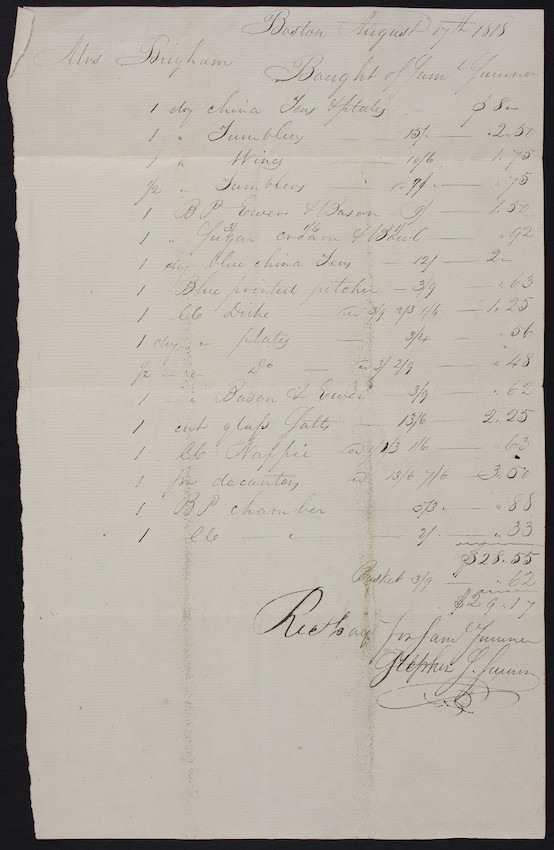 Boston August 17th 1818
Mrs Brigham
Bought of Saml Sumner
1 doz china Teas & plates $8.–
1 " Tumblers 15/. 2.50
1 " Wines 10/6 1.75
1/2 " Tumblers 9/. .75
1 BP Ewer & Bason 9/ 1.50
1 " Sugar cream & Bowl .92
1 doz blue china Teas 12/ 2.–
1 Blue printed pitcher 3/9 .63
1 CC Dishe 3/9 2/3 1/6 1.25
1 doz " plates 3/4 .56
1/2 " Do 3/ 2/9 .48
1 " Bason & Ewer 3/9 .62
1 cut glass Salts 13/6 2.25
1 CC Nappie 1/6 .63
1 pr decanters 13/6 7/6 3.50
1 BP chamber 5/3 .88
1 CC " 2/ .33
$28.55
Basket 3/9 .62
$29.17
Rec'd pay for Saml Sumner
Stephen